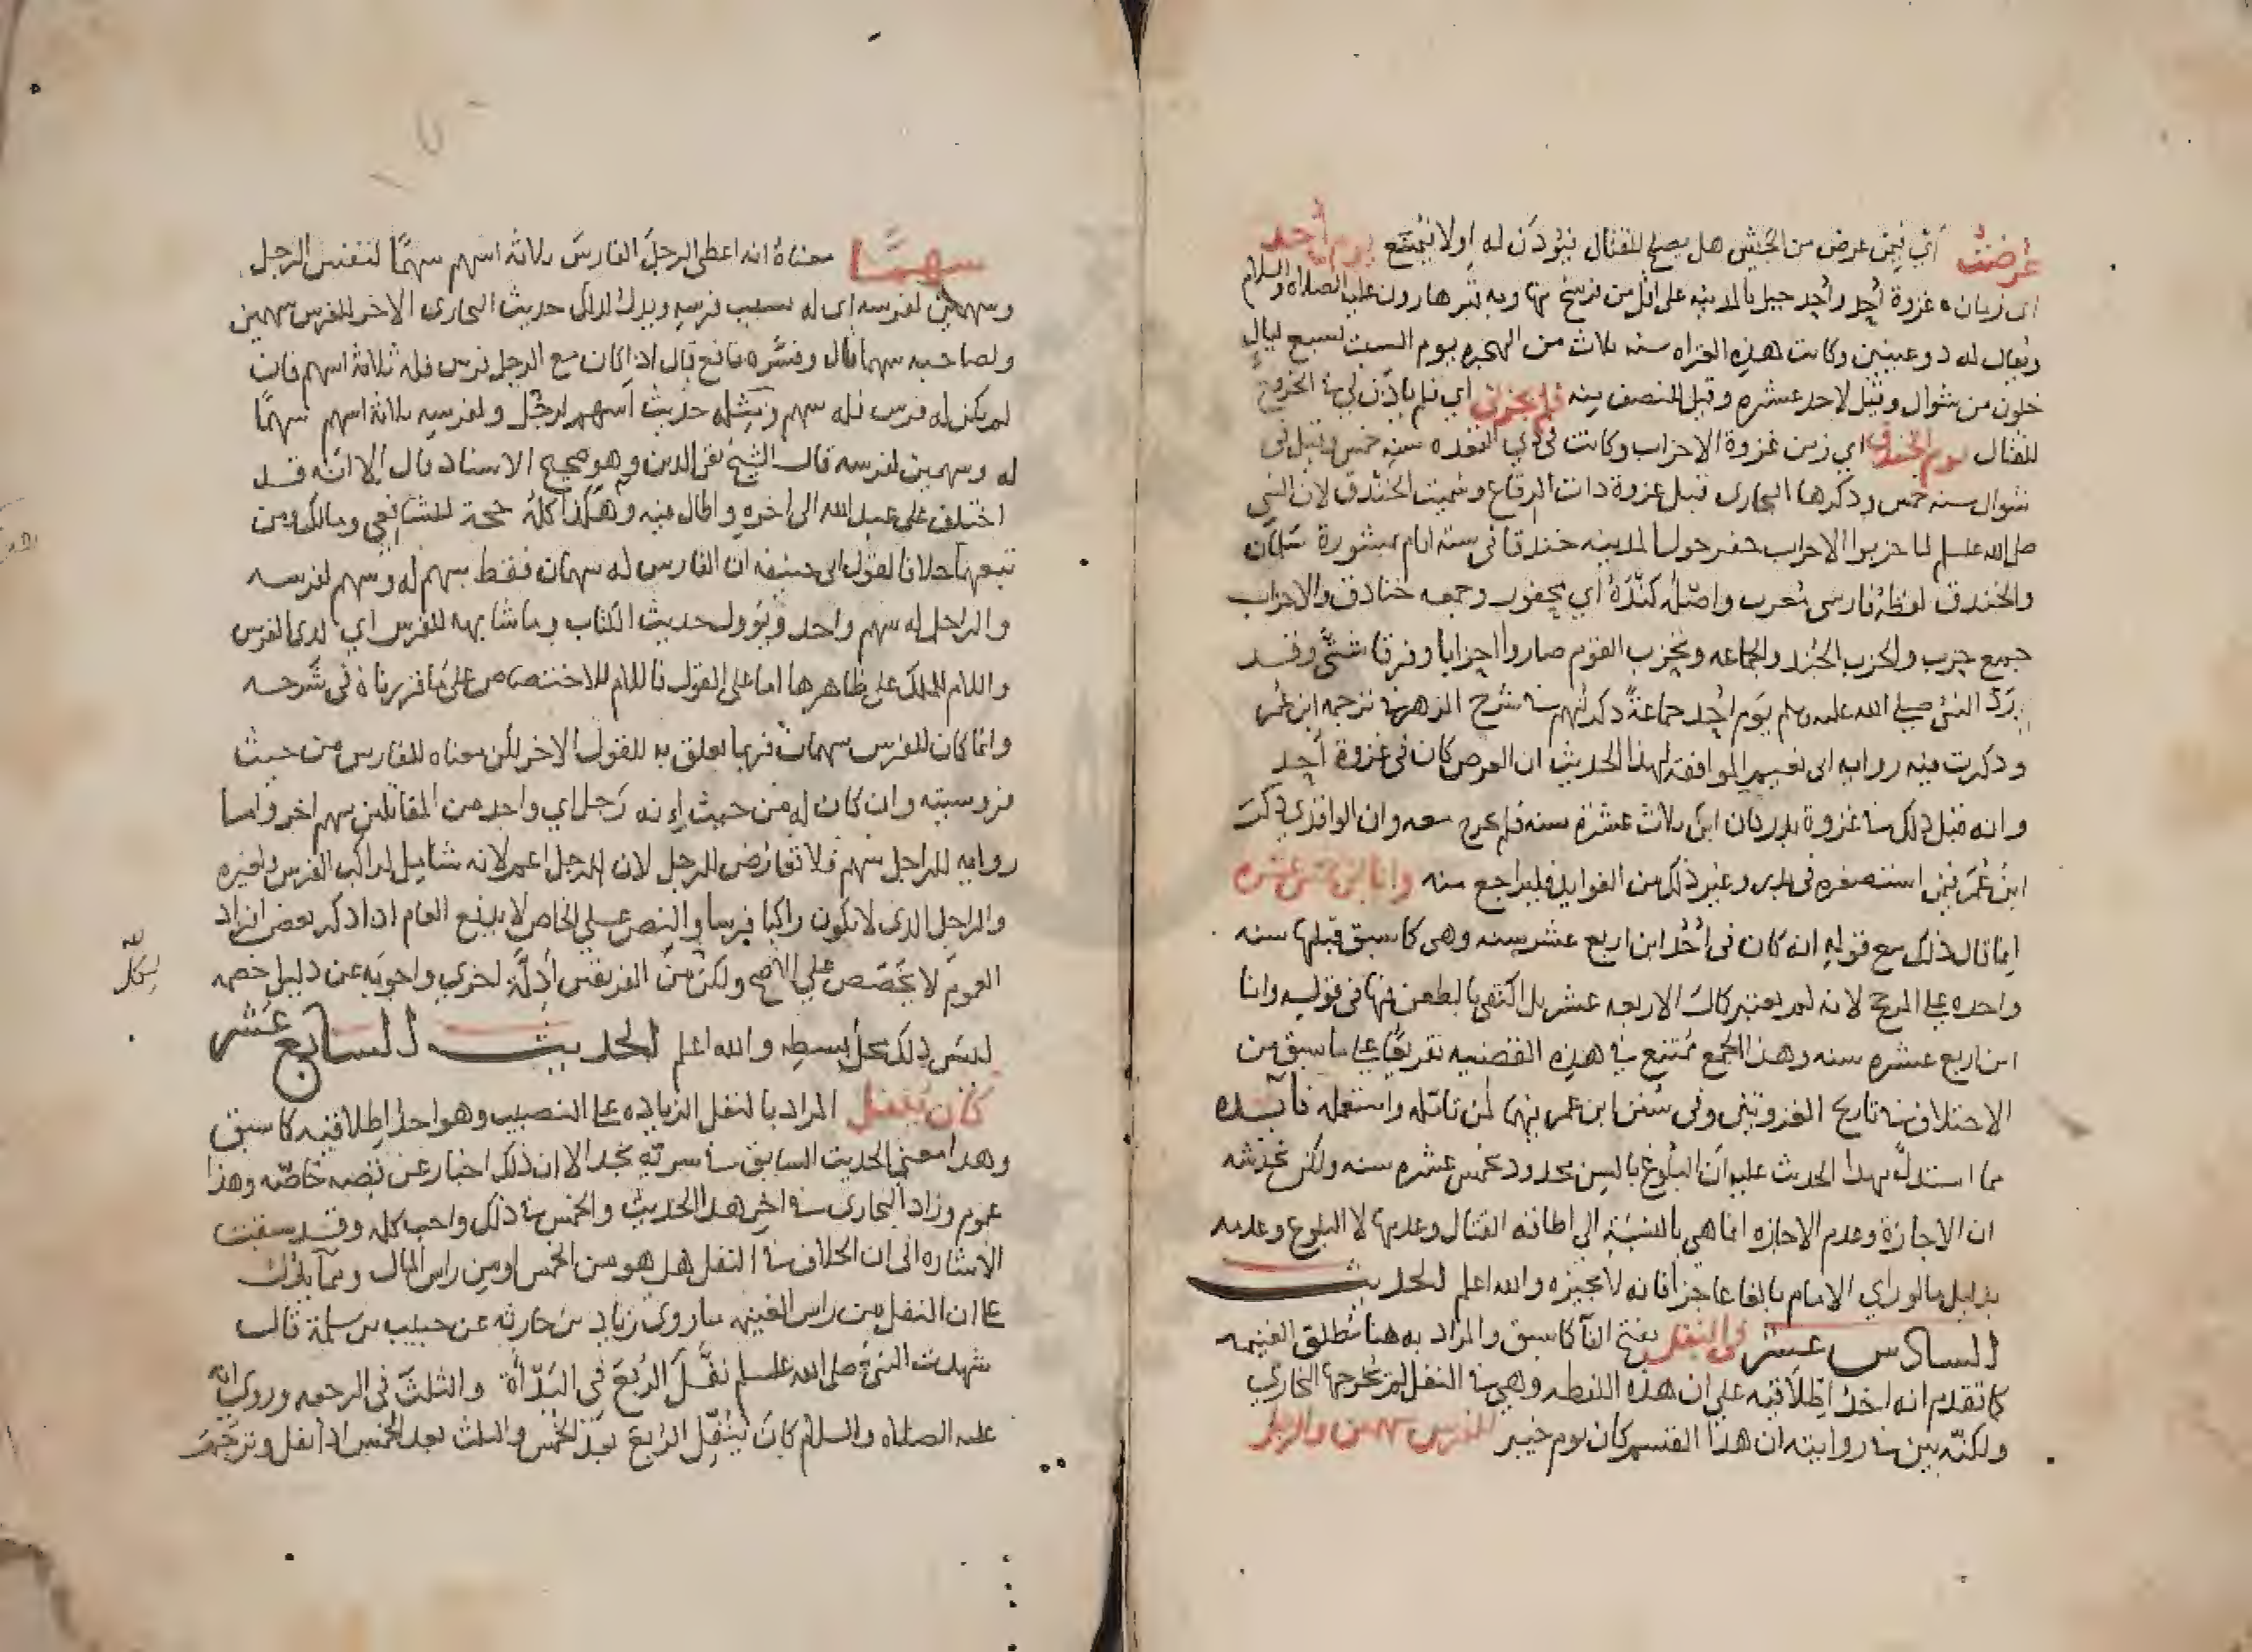 عُرضتُ أي فيمن عرض من الجيش هل يصلح للقتال فيؤذن له أولا فيمنع يوم أُحد
اى زمان غزوة أُحد وأُحد جبل بالمدينه على اقل من فرسخ منها وبه قبر هارون عليه الصلاه والسلام
ويقال له ذو عينين وكانت هذه الغزاه سنه ثلاث من الهجره يوم السبت لسبع ليالٍ
خلون من شوال وقيل لاحد عشره وقيل للنصف منه فلم يجزني اي فلم ياذن لي في الخروج
للقتال يوم الخندق اي زمن غزوة الاحزاب وكانت في ذي القعده سنه خمس وقيل في
شوال سنه خمس وذكرها البخارى قبل غزوة ذات الرقاع وسميت الخندق لان النبي
صلى الله عليه وسلم لما حزبوا الاحزاب حفر حول المدينه خندقا في ستة ايام بمشورة سلمان
والخندق لفظه فارسى مُعرب واصله كَنْدَهْ أي محفور وجمعه خنادق والاحزاب
جمع حِزب والحزب الجُند والجماعه وتحزب القوم صاروا احزابا وفرقا شتّى وقد
ردّ النبى صلى الله عليه وسلم يوم اُحد جماعةً ذكرتهم في شرح الزهر في ترجمه ابن عُمر
وذكرت فيه روايه ابى نعيم الموافقه لهذا الحديث ان العرض كان في غزوة اُحد
وانه قبل ذلك في غزوة بدر كان ابن ثلاث عشرة سنه فلم يخرج معه وان الواقدي ذكر
ابن عُمر فيمن استصغره في بدر وغير ذلك من الفوايد فليراجع منه وانا ابن خمس عشره
انما قال ذلك مع قوله انه كان في اُحُد ابن اربع عشر سنه وهى كما سبق قبلها سنه
واحده على المرجح لانه لم يعتبر كمال الاربعه عشر بل اكتفى بالطعن فيها في قوله وانا
ابن اربع عشره سنه وهذا الجمع مُمتنع في هذه القضيه تفريعًا على ما سبق من
الاختلاف في تاريخ الغزوتين وفى سُنن ابن عمر فيهما لمن تامّله واستعمله فايده
مما استدلّ بهذا الحديث عليه ان البلوغ بالسِن محدود بخمس عشره سنه ولكن يخدشه
ان الاجازة وعدم الاجازه انما هي بالنسبة الى اطاقه القتال وعدمها لا البلوغ وعدمه
بدليل ما لو راي الامام بالغا عاجزا فانه لا يجيزه والله اعلم الحديث
السادس عشر في النفل بفتح الفآ كما سبق والمراد به هنا مُطلق الغنيمه
كما تقدم انه احد اطلاقيه على ان هذه اللفظه وهي في النفل لم يخرجها البخاري
ولكنّه بين في روايته ان هذا القسم كان يوم خيبر للفرس سهمين والرجل
سهمًا معناه انه اعطى الرجلَ الفارسَ ثلاثه اسهم سهمًا لنفس الرجل
وسهمين لفرسه اى له بسبب فرسه ويدل لذلك حديث البخارى الاخر للفرس سهمين
ولصاحبه سهما قال وفسَّره نافع قال اذا كان مع الرجل فرس فله ثلاثة اسهم فان
لم يكن له فرس فله سهم ومثله حديث أسهم لرجُل ولفرسه ثلاثة اسهم سهمًا
له وسهمين لفرسه قال الشيخ تقى الدين وهو صحيح الاسناد قال إلا انّه قد
اختلف على عبيد الله الى اخره واطال فيه وهَكذا كلهُ حجة للشافعي ومالك ومن
تبعهما خلافا لقول ابى حنيفه ان الفارس له سهمان فقط سهم له وسهم لفرسه
والراجل له سهم واحد ويُؤول حديث الكتاب وما شابهه للفرس اي لذى الفرس
واللام للملك على ظاهرها اما على القول فاللام للاختصاص على ما قررناه في شرحه
وانما كان للفرس سهمان فربما يعلق به للقول الاخر لكن معناه للفارس من حيث
فروسيته وان كان له من حيث انه رَجل اي واحد من المقاتلين سهم اخر واما
روايه للراجل سَهم فلا تعارض للرجل لان الرجل اعم لانه شامِل لراكب الفرس ولغيره
والراجل الذى لا يكون راكبا فرسا والنص على الخاص لا يدفع العام اذا ذكر بعض افراد
العموم لا يخَصّص على الاصح ولكنْ منَ الفريقين أدِلَّة اخري واجوبَه عن دليل خصمه
ليس ذلك محل بسطه والله اعلم الحديث السابع عشر
كان يُنفل المراد بالنفل الزياده على النصيب وهو احد اطلاقيه كما سبق
وهذا معنى الحديث السابق في سرية نجد الا ان ذلك اخبار عن قصه خاصّه وهذا
عموم وزاد البخارى في اخر هذا الحديث والخمس في ذلك واجب كله وقد سبقت
الاشاره الى ان الخلاف في النفل هل هو من الخمس او من راس المال ومما يدُلّ
على ان النفل من راس الغنيمه ما روى زياد بن حارثه عن حبيب بن مسلمة قال
شهدت النبيّ صلى الله عليه وسلم نفَّلَ الرُبعَ في البَدْأَة والثلثَ في الرجعه وروى انه
عليه الصلاه والسلام كانَ يُنَفِّل الرُبعَ بعدَ الخمس والثلث بعد الخمس اذا قفل وترجم